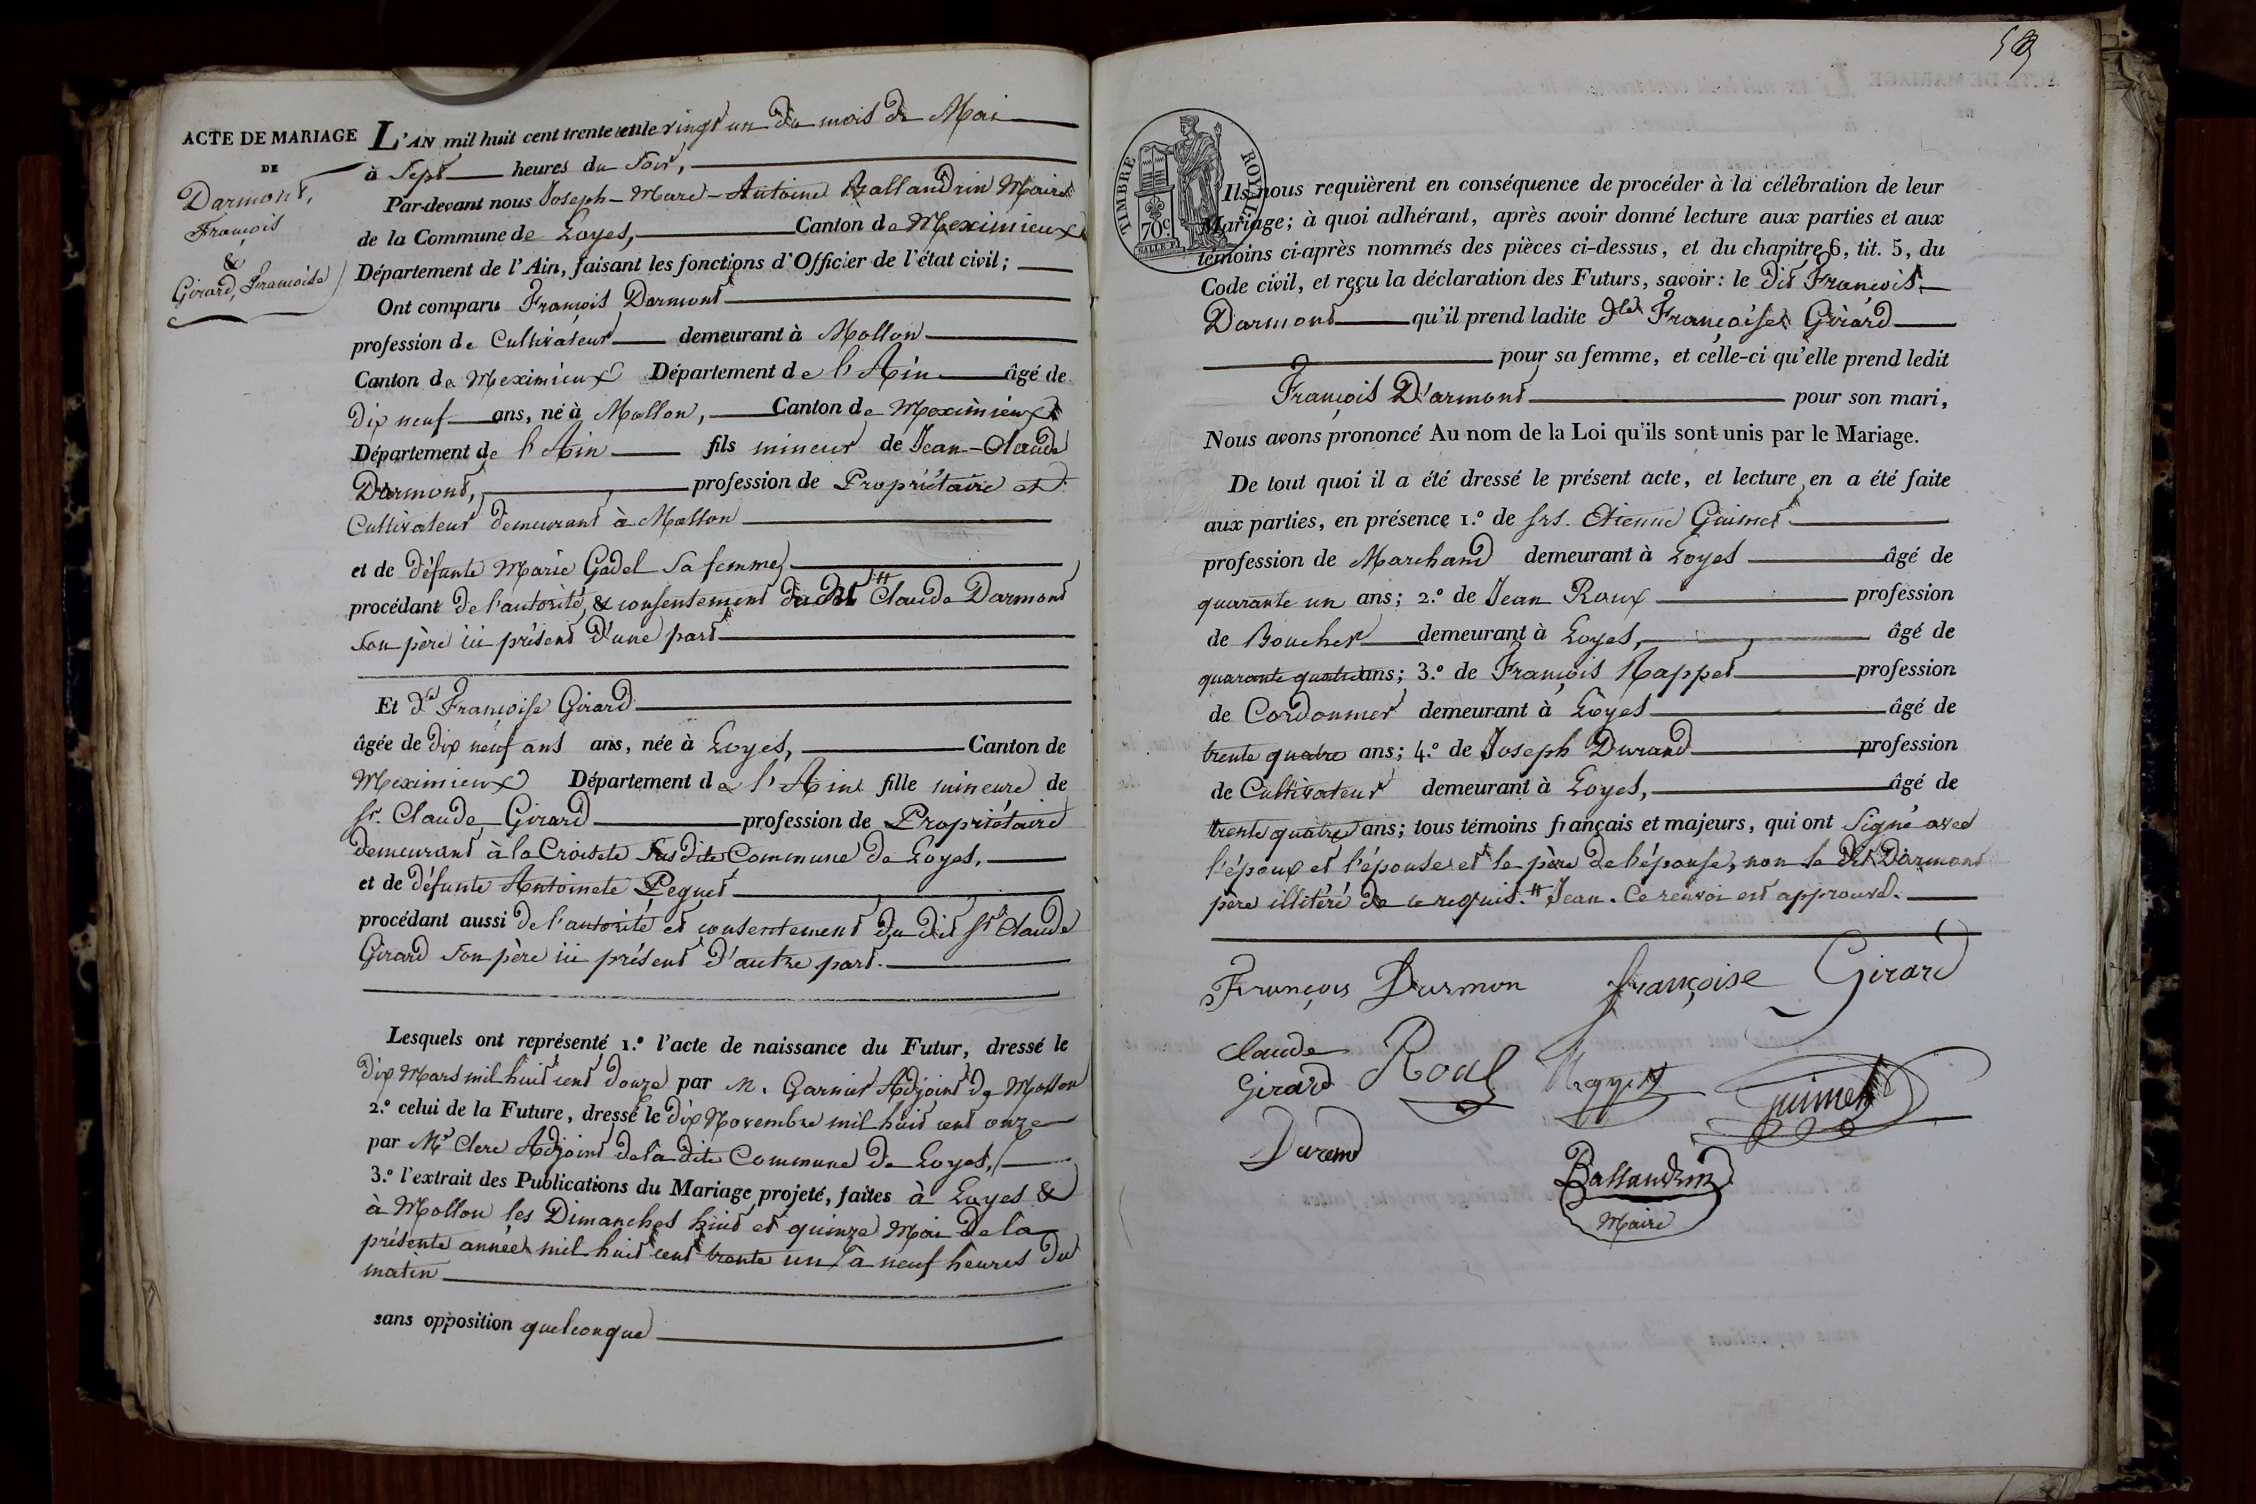 ACTE DE MARIAGE
DE
Darmont,
François
&
Girard, Françoise
L'AN mil huit cent trente et un le vingt un du mois de Mai
à Sept heures du Soir,
Par-devant nous Joseph-Marc-Antoine Ballandrin Maire
de la Commune de Loyes, Canton de Meximieux
Département de l'Ain, faisant les fonctions d'Officier de l'état civil;
Ont comparu François Darmont
profession de Cultivateur demeurant à Mollon
Canton de Meximieux Département de l'Ain âgé de
dix neuf ans, né à Mollon, Canton de Meximieux
Département de l'Ain fils mineur de Jean-Claude
Darmont, profession de Propriétaire et
Cultivateur demeurant à Mollon
et de défunte Marie Gadel sa femme
procédant de l'autorité & consentement du dit # Claude Darmont
son père ici présent d'une part
Et dlle Françoise Girard
âgée de dix neuf ans ans, née à Loyes, Canton de
Meximieux Département de l'Ain fille mineure de
sr. Claude Girard profession de Propriétaire
demeurant à la Croisete susdite Commune de Loyes,
et de défunte Antoinete Peguet
procédant aussi de l'autorité et consentement du dit sr Claude
Girard son père ici présent d'autre part.
Lesquels ont représenté 1.º l'acte de naissance du Futur, dressé le
dix Mars mil huit cent douze par M. Garnier Adjoint de Mollon
2.º celui de la Future, dressé le dix Novembre mil huit cent onze
par Mr Clerc Adjoint de la dite Commune de Loyes,
3.º l'extrait des Publications du Mariage projeté, faites à Loyes &
à Mollon les Dimanches huit et quinze Mai de la
présente année mil huit cent trente un à neuf heures du
matin
sans opposition quelconque
59
TIMBRE ROYAL
70c.
Ils nous requièrent en conséquence de procéder à la célébration de leur
Mariage; à quoi adhérant, après avoir donné lecture aux parties et aux
témoins ci-après nommés des pièces ci-dessus, et du chapitre 6, tit. 5, du
Code civil, et reçu la déclaration des Futurs, savoir: le dit François
Darmont qu'il prend ladite dlle Françoise Girard
pour sa femme, et celle-ci qu'elle prend ledit
François D'armont pour son mari,
Nous avons prononcé Au nom de la Loi qu'ils sont unis par le Mariage.
De tout quoi il a été dressé le présent acte, et lecture en a été faite
aux parties, en présence 1.º de srs. Etienne Guimet
profession de Marchand demeurant à Loyes âgé de
quarante un ans; 2.º de Jean Roux profession
de Boucher demeurant à Loyes, âgé de
quarante quatre ans; 3.º de François Rappet profession
de Cordonnier demeurant à Loyes âgé de
trente quatre ans; 4.º de Joseph Durand profession
de Cultivateur demeurant à Loyes, âgé de
trente quatre ans; tous témoins français et majeurs, qui ont signé avec
l'époux et l'épouse et le père de l'épouse, non le dit Darmont
père illitéré de ce requis. # Jean. Ce renvoi est approuvé.
François Darmon françoise Girard
Claude
Girard Roux Rappet Guimet
Durand
Ballandrin
Maire